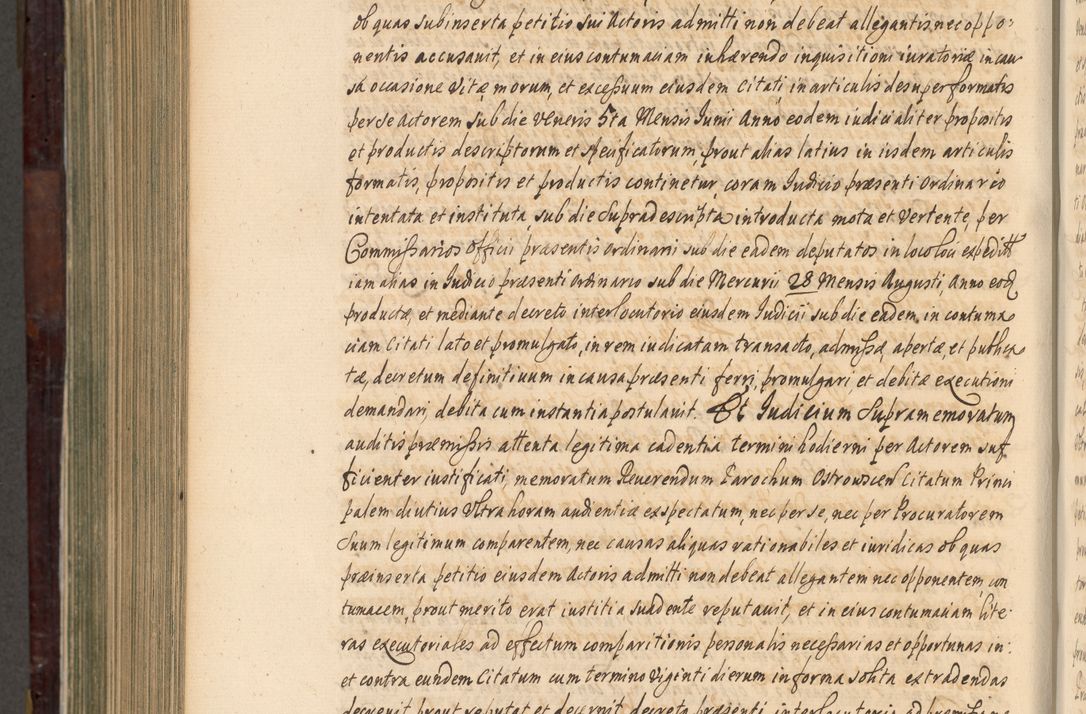 ob quas subinserta petitio sui Actoris admitti non debeat allegantis, nec oppo:
nentis accusavit, et in eius contumaciam inhærendo inquisitioni iuratoriæ in cau
sa occasione Vitæ, morum, et excessuum eiusdem Citati in articulis desuper formatis
per se Actorem sub die Veneris 5ta Mensis Iunii Anno eodem iudicialiter propositis
et productis descriptorum et specificatorum, prout alias latius in iisdem articulis
formatis, propositis et productis continetur, coram Iudicio præsenti Ordinario
intentata et instituta, sub die Supradescripta introducta mota et Vertente, per
Commissarios Officii præsentis Ordinarii sub die eadem deputatos in loco loci expedit
iam alias in Iudicio præsenti Ordinario sub die Mercurii 28 Mensis Augusti, Anno eod
productæ, et mediante decreto interlocutorio eiusdem Iudicii sub die eadem, in contuma
ciam Citati lato et promulgato, in rem iudicatam transacto, admissæ, apertæ, et publica
tæ, decretum definitivum in causa præsenti ferri, promulgari et debitæ executioni
demandari, debita cum instantia postulavit. Et Iudicium Supramemoratum
auditis præmissis attenta legitima cadentia termini hodierni per Actorem suf
ficienter iustificati, memoratum Reverendum Parochum Ostrowscen Citatum Princi
palem diutius Ultra horam audientiæ expectatum, nec per se, nec per Procuratorem
Suum legitimum comparentem, nec causas aliquas rationabiles et iuridicas ob quas
præinserta petitio eiusdem Actoris admitti non debeat allegantem nec opponentem, con
tumacem, prout merito erat iustitia suadente reputavit, et in eius contumaciam lite:
ras executoriales ad effectum comparitionis personalis necessarias et opportunas in:
et contra eundem Citatum cum termino Viginti dierum in forma solita extradendas
decrevit prout reputat et decernit decreto præsenti interlocutorio